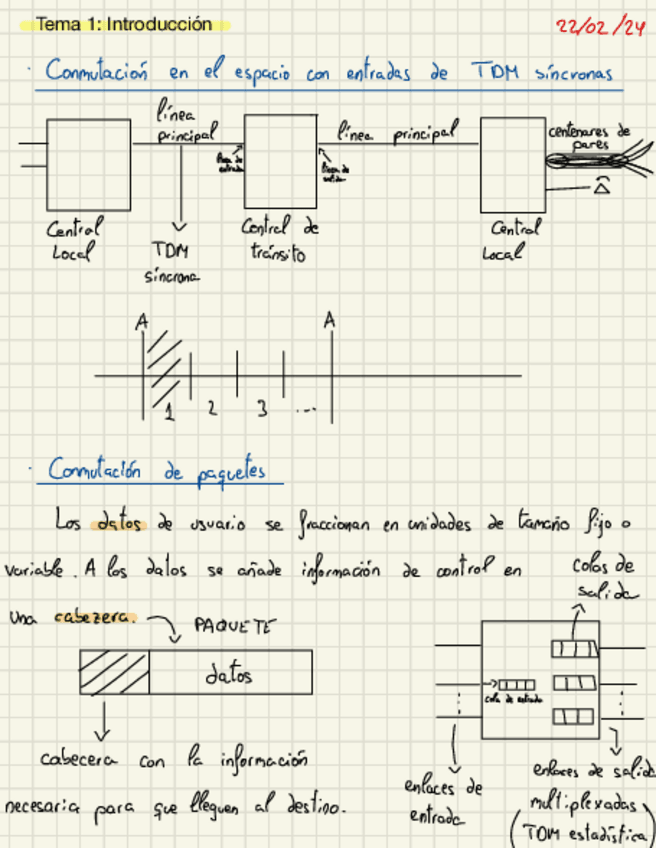 Tema 1: Introducción
22/02/24
· Conmutación en el espacio con entradas de TDM síncronas
línea
principal
línea de
entrada
línea de
salida
línea principal
centenares de
pares
Central
Local
TDM
síncrona
Central de
tránsito
Central
Local
A
A
1 2 3 ...
· Conmutación de paquetes
Los datos de usuario se fraccionan en unidades de tamaño fijo o
variable. A los datos se añade información de control en
una cabezera.
PAQUETE
datos
cabecera con la información
necesaria para que lleguen al destino.
colas de
salida
cola de entrada
enlaces de
entrada
enlaces de salida
multiplexadas
(TDM estadística)